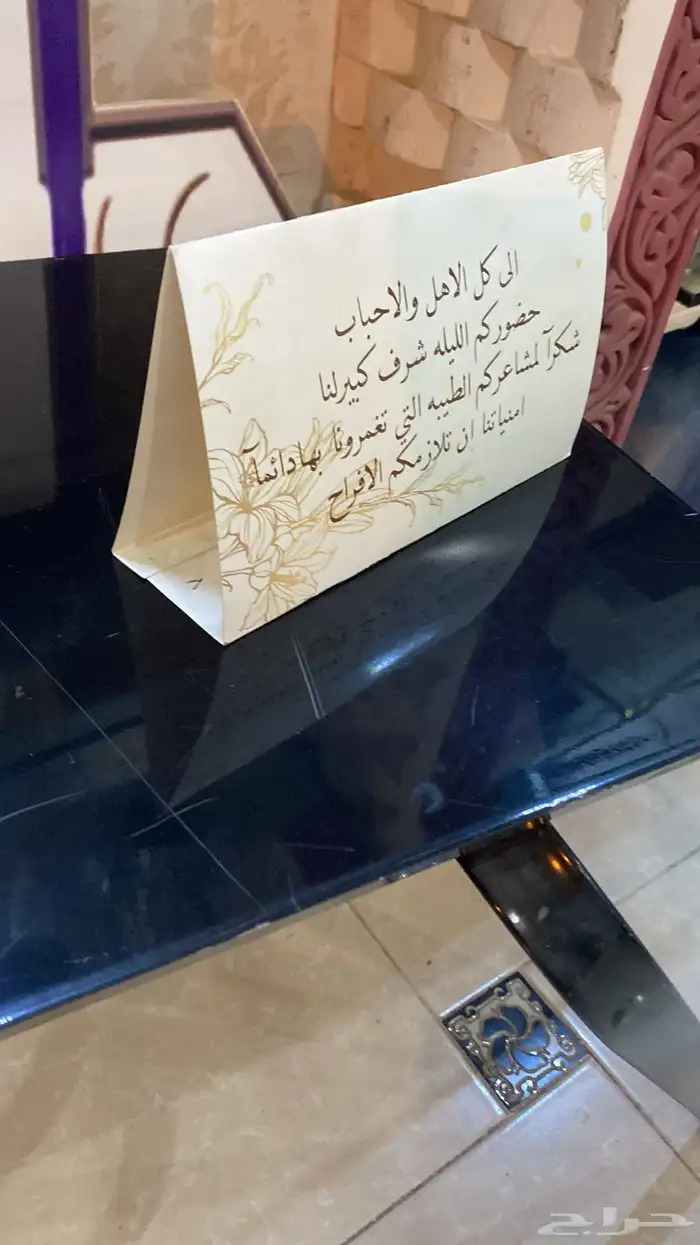 الى كل الاهل والاحباب
حضوركم الليله شرف كبيرلنا
شكرآ لمشاعركم الطيبه التي تغمرونا بهادائمآ
امنياتنا ان تلازمكم الافراح
حراج